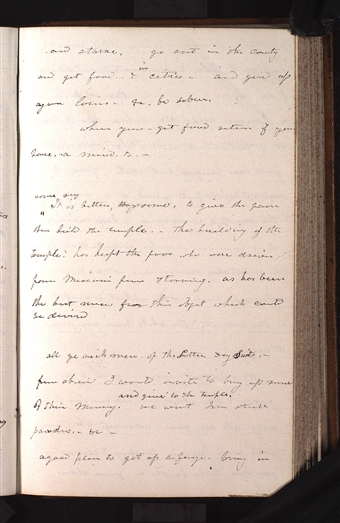 and starve. go out in the county
and get food. & in cities - and give up
your towns - &c. be sober.
when you - get food return if you
have. a mind. to. -
some say
"It is better, says some, to give the poor
than build the temple. - the building of the
temple has kept the poor who were driven
from Missouri from starving. as has been
the best means for this object which could
be devised
all ye rich men of the Latter Day Saints. -
from abroad I would invite to bring up some
of their money. and give to the temple.
we want Iron steel
powder. - &c -
a good plan to get up a forge. bring in